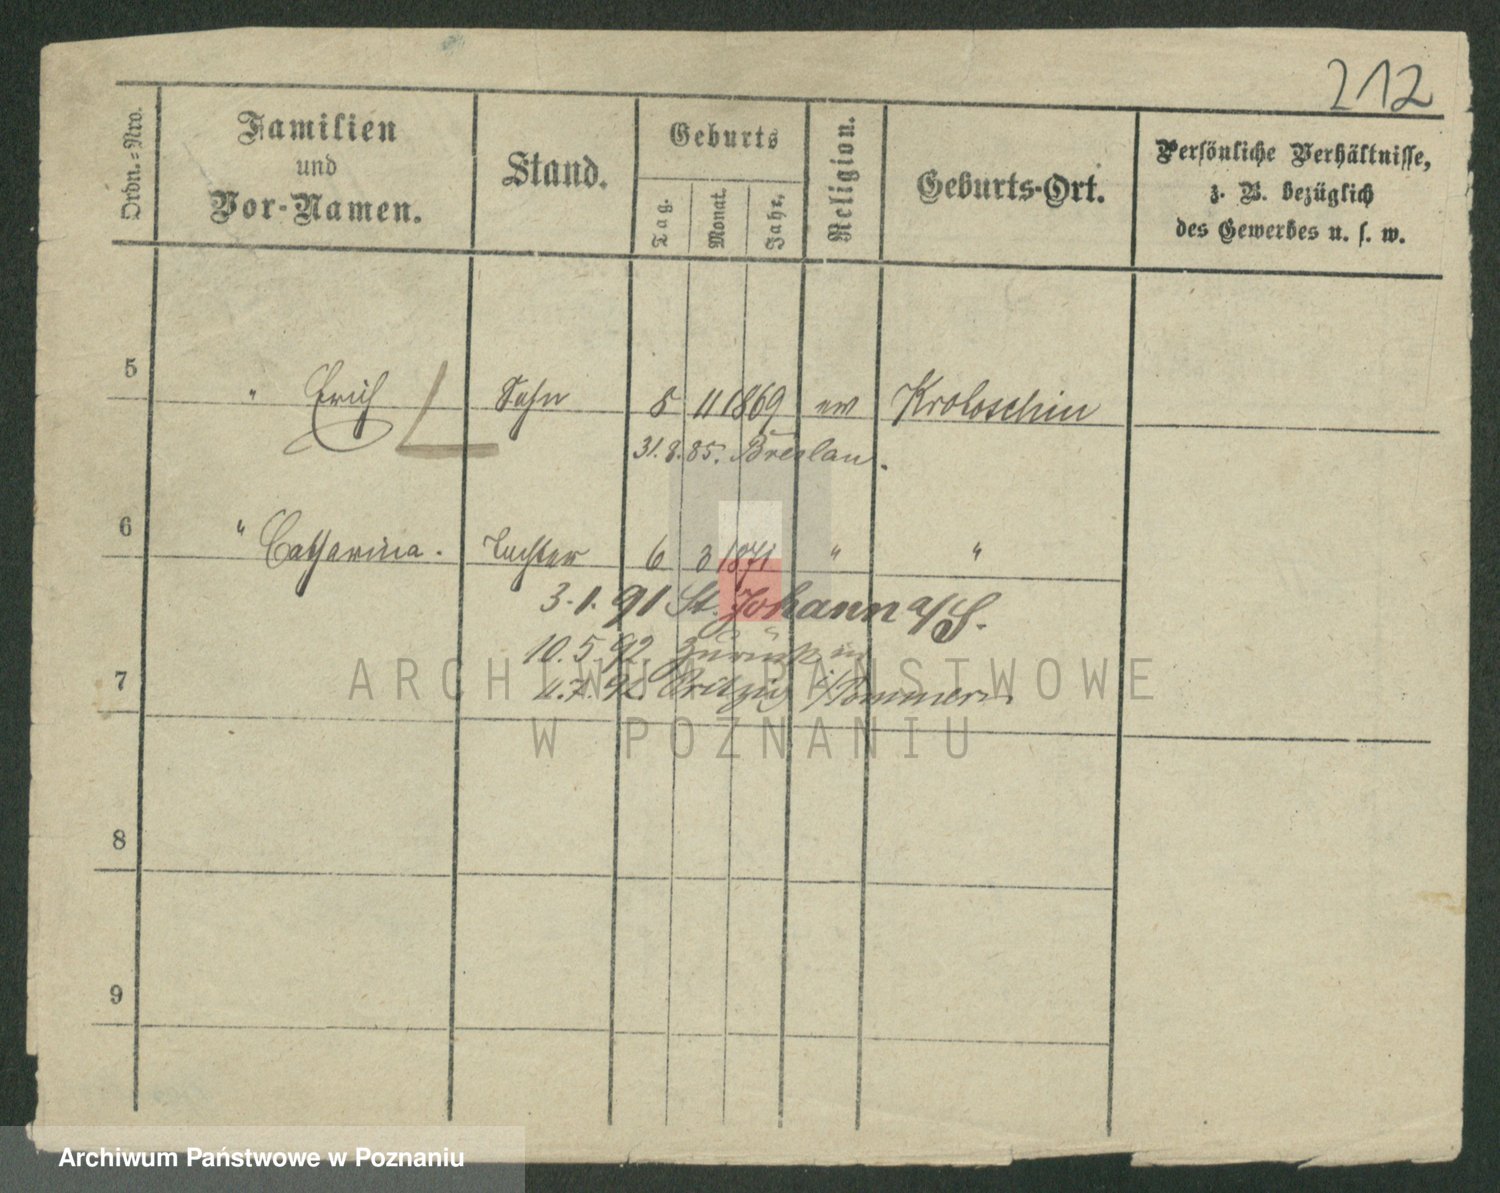 212
Ordn.=Nro.
Familien
und
Vor-Namen.
Stand.
Geburts
Tag.
Monat.
Jahr.
Religion.
Geburts-Ort.
Persönliche Verhältnisse,
z. B. bezüglich
des Gewerbes u. s. w.
5 " Erich Sohn 8 11 1869 ev Krotoschin
31.8.85. Breslau.
6 " Catharina. Tochter 6 3 1871 " "
3.1.91 St. Johann a/S.
10.5.92. Zurück
7
i/Pommern
8
9
ARCHIWUM PAŃSTWOWE
W POZNANIU
Archiwum Państwowe w Poznaniu